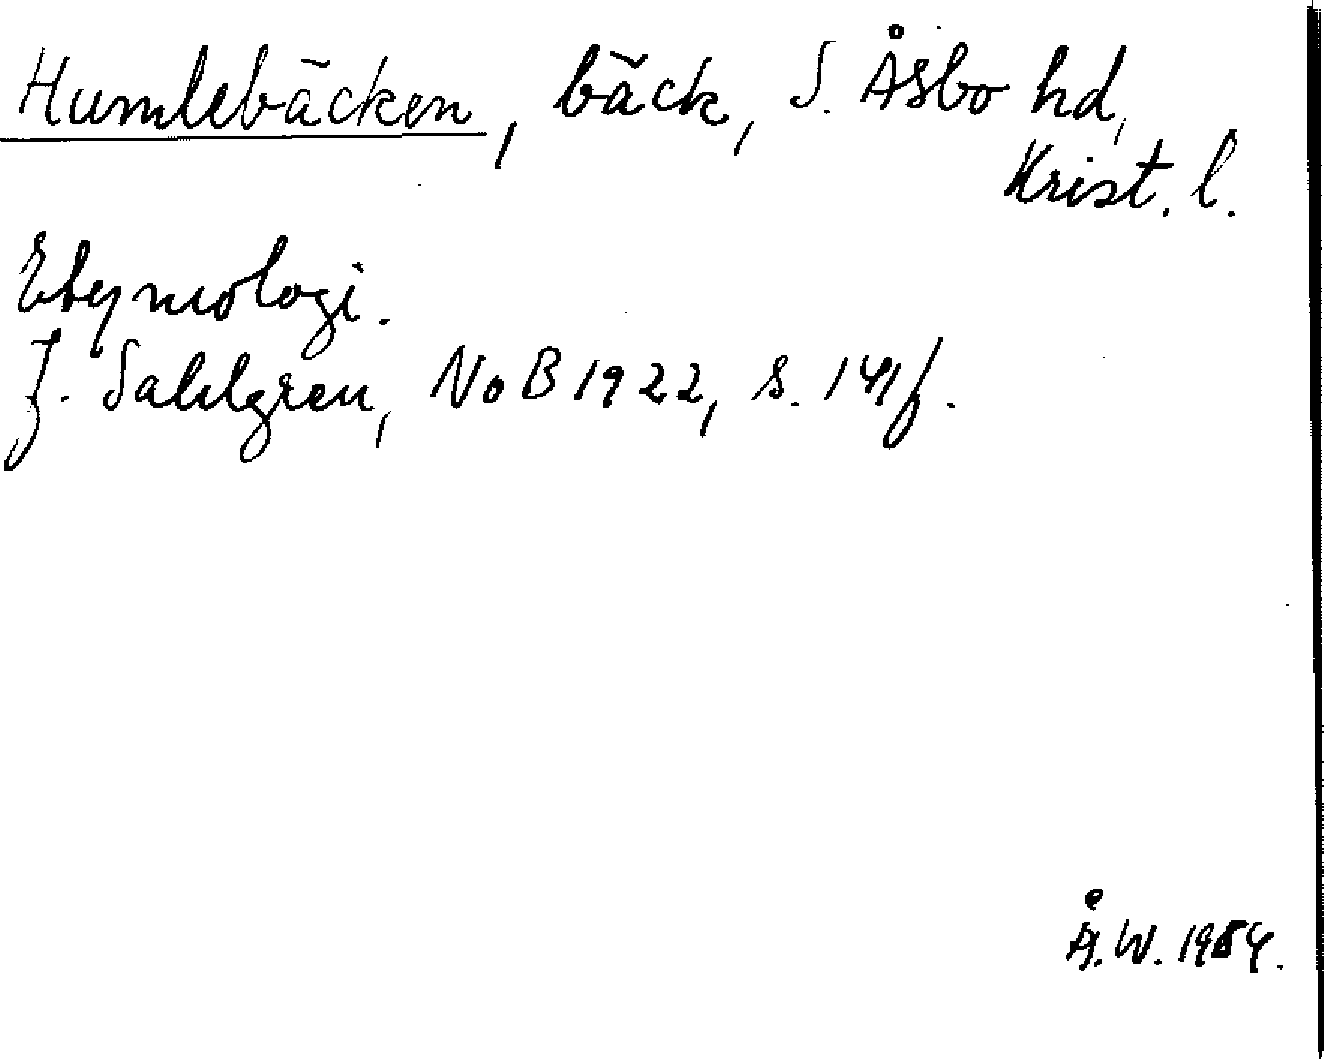 Humlebäcken, bäck, S. Åsbo hd,
Krist. l.
Etymologi.
J. Sahlgren, NoB 1922, s. 141f.
Å.W. 1954.